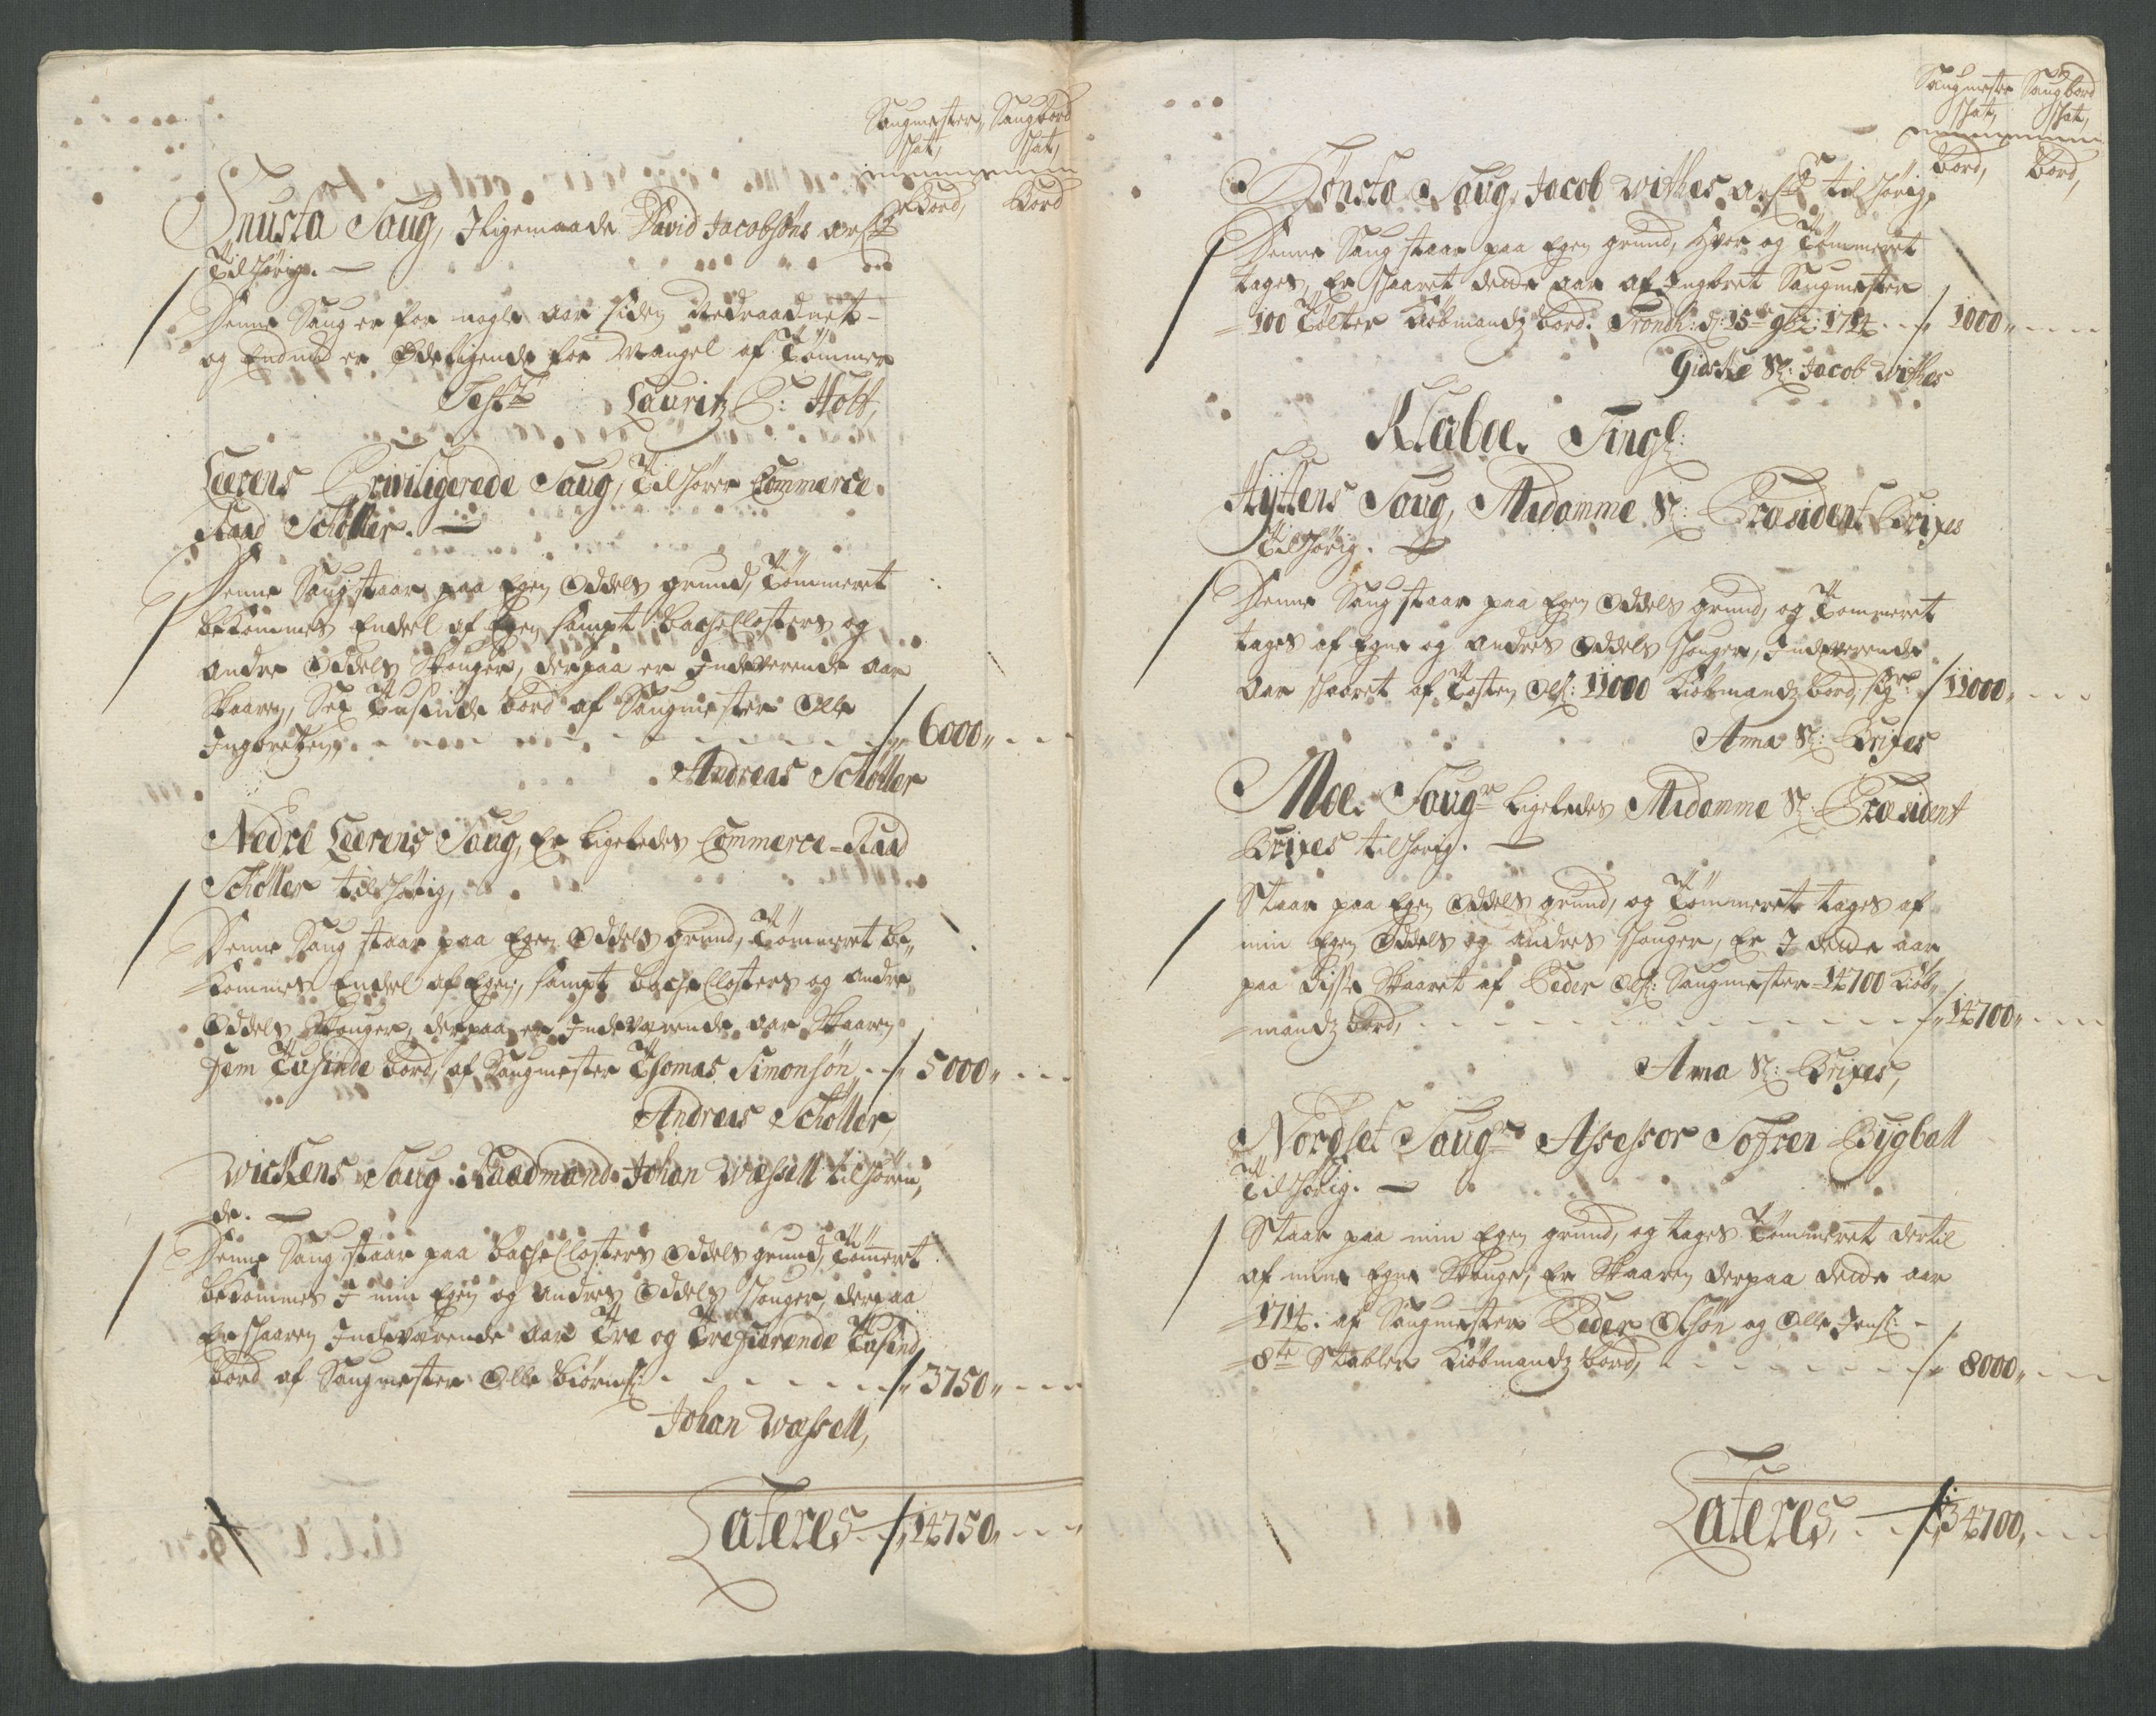 Saugmester, Saugbord
schat, schat,
Bord, Bord
Gnusta Saug, Iligemaade David Jacobsøns arf:
Tilhørig. —
Denne Saug er for nogle aar siden Nedraadnet
og Endnu er Ødeligende for Mangel af Tømmer
Test Lauritz C: Holt,
Leerens Priviligerede Saug, Tilhører Commerce
Raad Schøller. —
Denne Saug staar paa Egen Oddels grund, Tømmeret
bekommes Endeel af Egen, sampt Bache Closters og
andre Oddels Skouger, derpaa er Indeverende aar
Skaaren, Sex Tusinde bord af Saugmester Olle
Ingbretzen, 6000
Andreas Schøller
Nedre Leerens Saug, Er ligeledes Commerce-Raad
Schøller tilhørig,
Denne Saug staar paa Egen Oddels Grund, Tømmeret be-
kommes Endeel af Egen, sampt Bache Closters og andre
Oddels Skouger, derpaa er Indeværende aar Skaaren
fem Tusinde bord, af Saugmester Thomas Simonsøn 5000
Andreas Schøller,
Wickens Saug Raadmand Johan Wessell tilhøren,
de. —
Denne Saug staar paa Bache Closters Oddels grund, Tømeret
bekommes I min Egen og andres Oddels schouger, derpaa
Er schaaren Indeværende aar Tre og Trefierende Tusind
bord af Saugmester Olle Biørns: 3750
Johan Wessell,
Lateres 14750
Saugmester Saugbord
schat, schat,
Bord, Bord,
Tønsta Saug, Jacob Withes arf: tilhørig,
Denne Saug staar paa Egen grund, hvor og Tømmeret
tages, Er schaaret dette aar af Ingbret Saugmester
100 Tølter Kiøbmandz bord. Trondh: d: 15de 9br: 1714 1000
Gidske Sl: Jacob Withes
Klæboe Tingl:
Hyttens Saug, Madamme Sl: Præsident Brixes
Tilhørig. —
Denne Saug staar paa Egen Oddels grund, og Tømmeret
tages af Egne og andres Oddels schouger, Indeverende
aar schaaret af Tosten Ols: 11000 Kiøbmandz bord, siger 11000
Anna Sl: Brixes
Moe Saugr ligeledes Madamme Sl: Præsident
Brixes tilhørig. —
Staar paa Egen Oddels grund, og Tømmeret tages af
min Egen Oddels og andres schouger, Er I dette aar
paa disse Skaaret af Peder Ols: Saugmester 14700 Kiøb-
mandz bord, 14700
Anna Sl: Brixes,
Nordset Saugr Assessor Søfren Bygball
Tilhørig. —
Staar paa min Egen grund, og tages Tømmeret dertil
af mine Egne Skouge, Er Skaaren derpaa dette aar
1714. af Saugmester Peder Olsøn og Olle Jens:
8te Stabler Kiøbmandz bord, 8000
Lateres, 34700